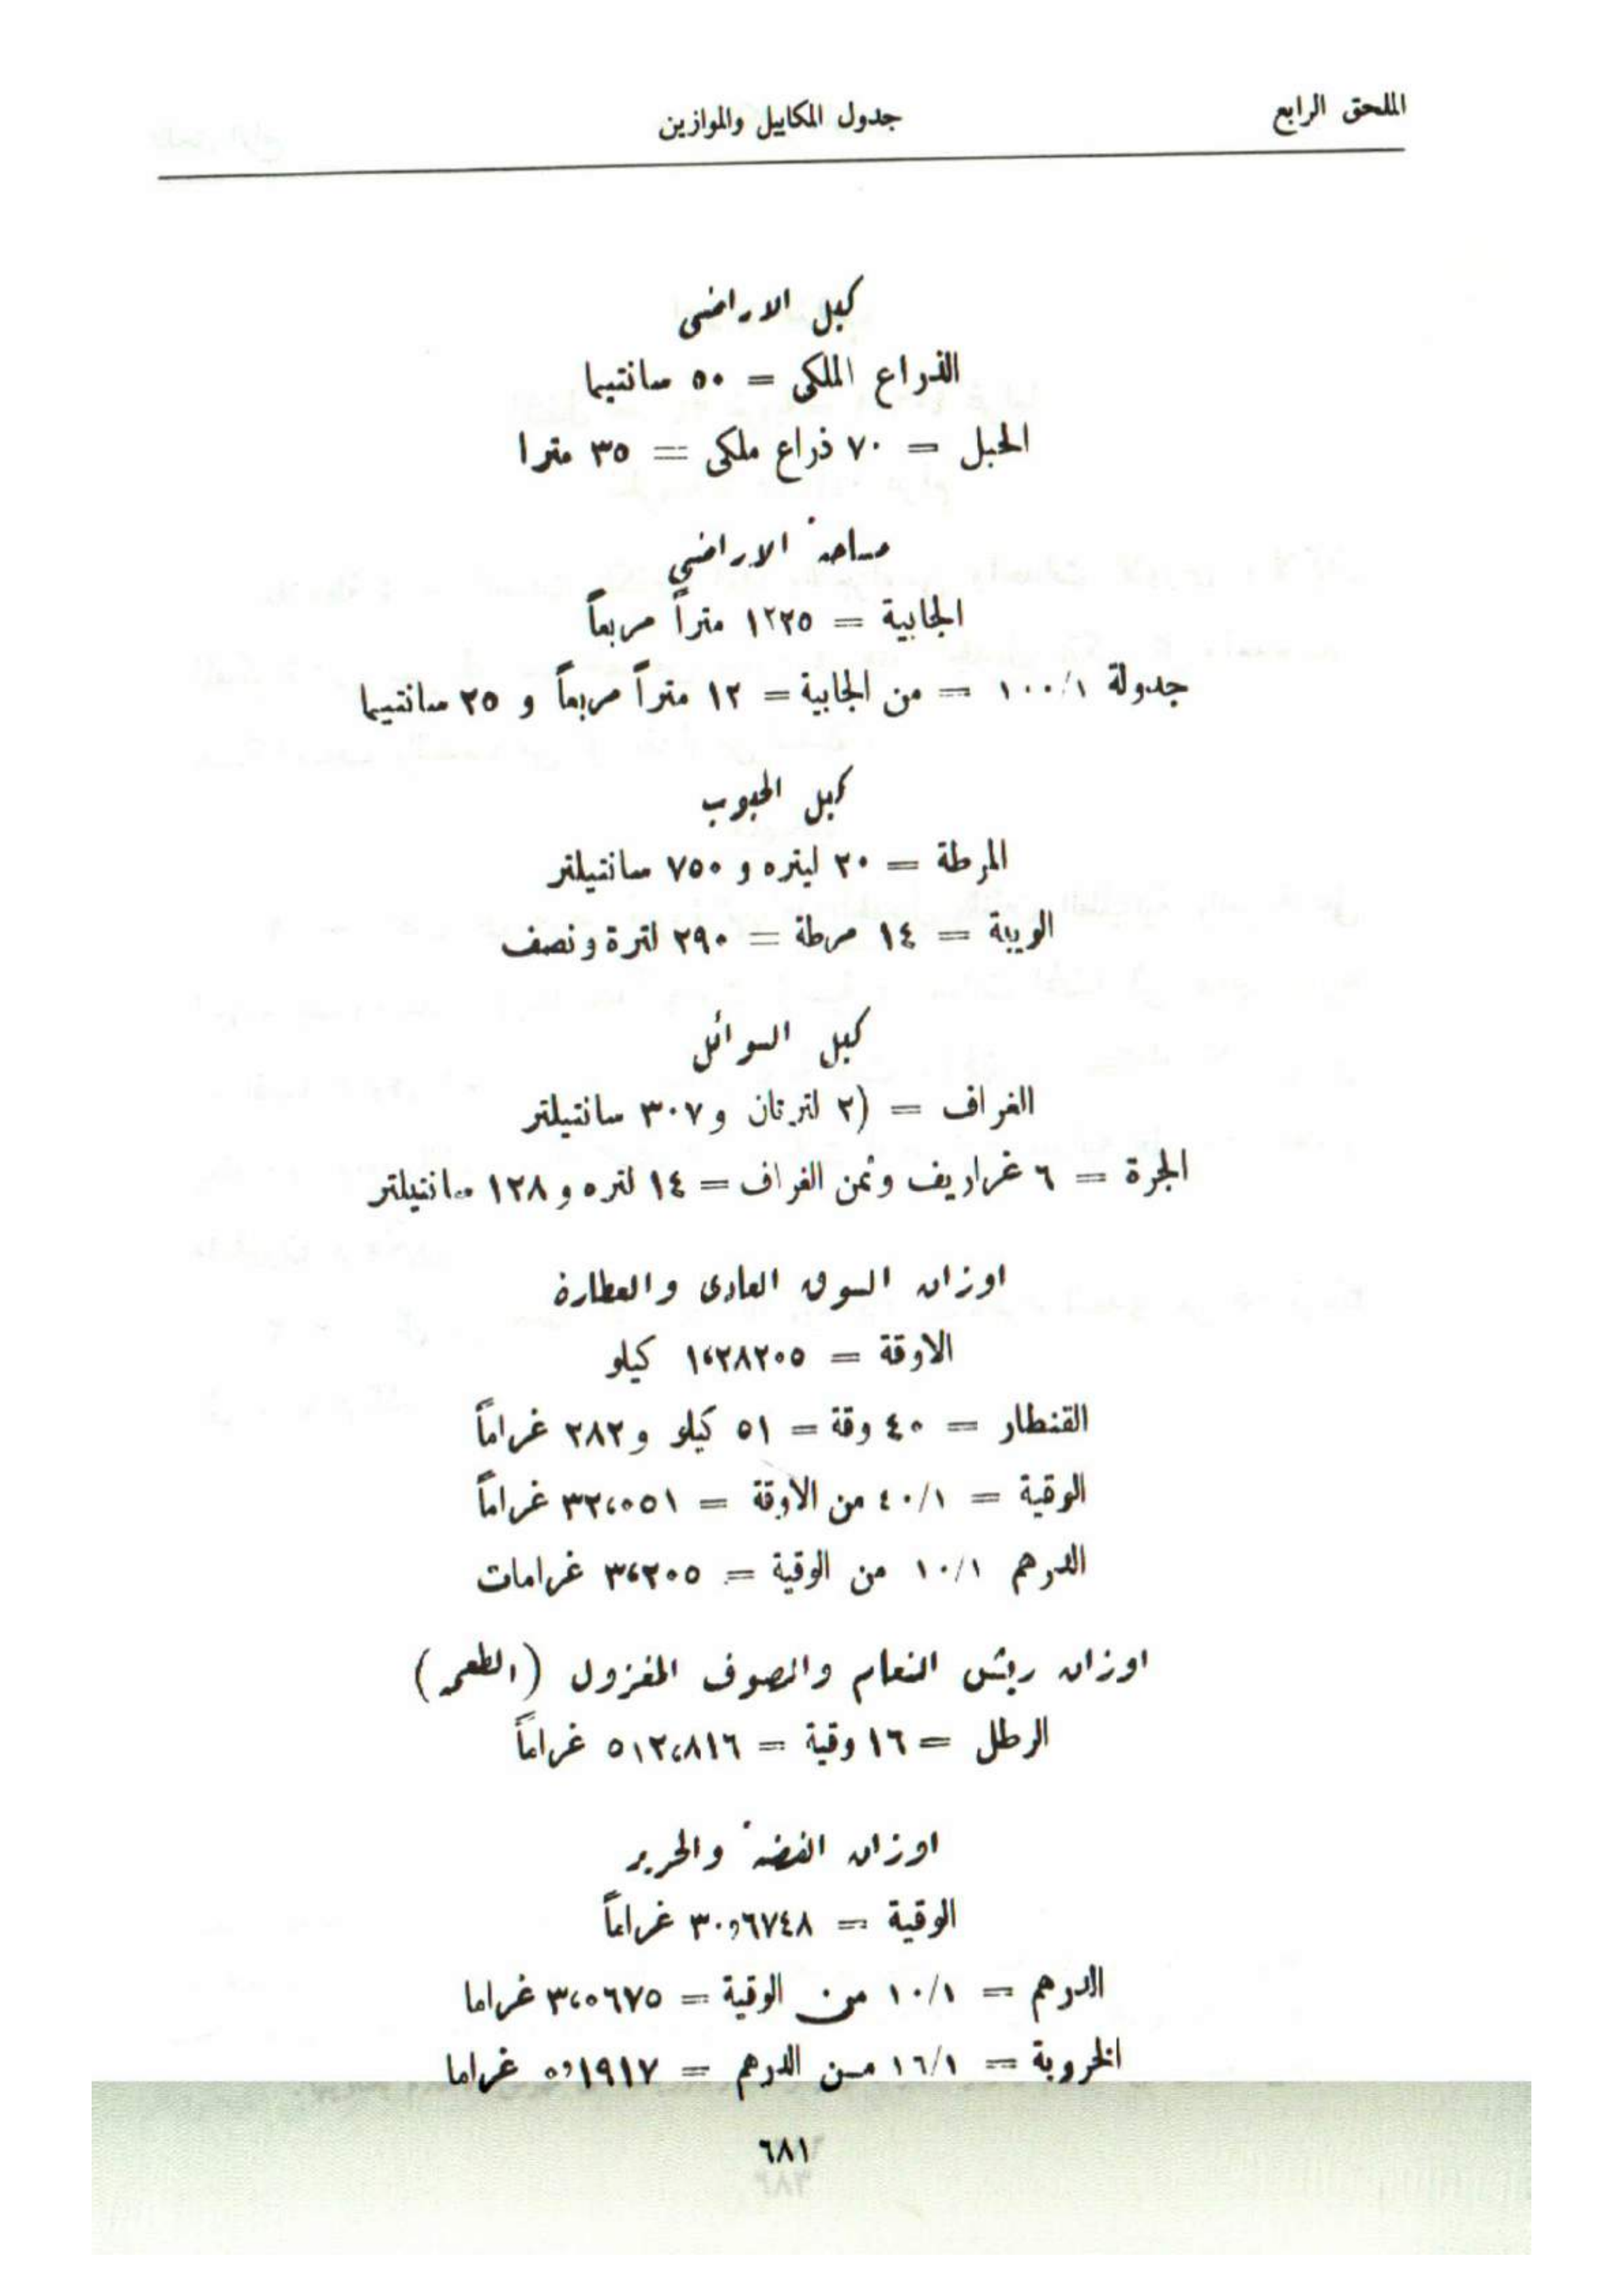 الملحق الرابع
جدول المكاييل والموازين
كيل الاراضي
الذراع الملكي = ٥٠ سانتيما
الحبل = ٧٠ ذراع ملكي = ٣٥ مترا
مساحة الاراضي
الجابية = ١٢٢٥ متراً مربعاً
جدولة ١٠٠/١ = من الجابية = ١٢ متراً مربعاً و ٢٥ سانتيما
كيل الحبوب
المرطة = ٢٠ ليتره و ٧٥٠ سانتيلتر
الويبة = ١٤ مرطة = ٢٩٠ لترة ونصف
كيل السوائل
الغراف = (٢ لترتان و٣٠٧ سانتيلتر
الجرة = ٦ غراريف وثمن الغراف = ١٤ لتره و ١٢٨ سانتيلتر
اوزان السوق العادي والعطارة
الاوقة = ١،٢٨٢٠٥ كيلو
القنطار = ٤٠ وقة = ٥١ كيلو و٢٨٢ غراماً
الوقية = ٤٠/١ من الاوقة = ٣٢،٠٥١ غراماً
الدرهم ١٠/١ من الوقية = ٣،٢٠٥ غرامات
اوزان ريش النعام والصوف المغزول (الطعمه)
الرطل = ١٦ وقية = ٥١٢،٨١٦ غراماً
اوزان الفضة والحرير
الوقية = ٣٠,٦٧٤٨ غراماً
الدرهم = ١٠/١ من الوقية = ٣،٠٦٧٥ غراما
الخروبة = ١٦/١ من الدرهم = ٠,١٩١٧ غراما
٦٨١